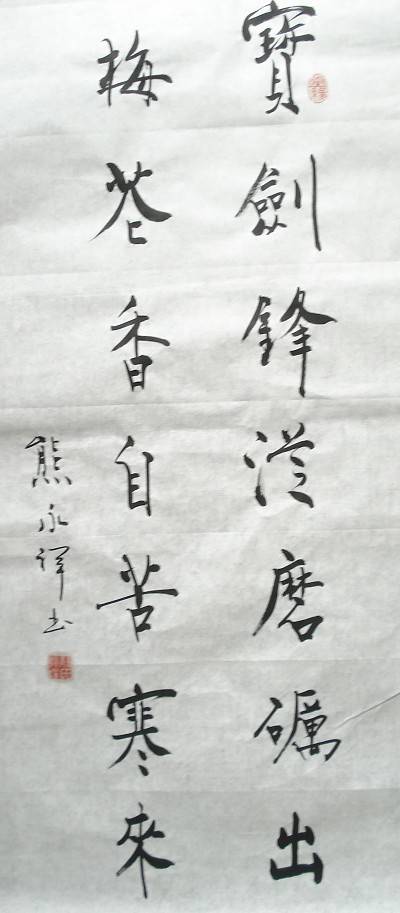 寶劍鋒從磨礪出
梅花香自苦寒來
熊永祥书